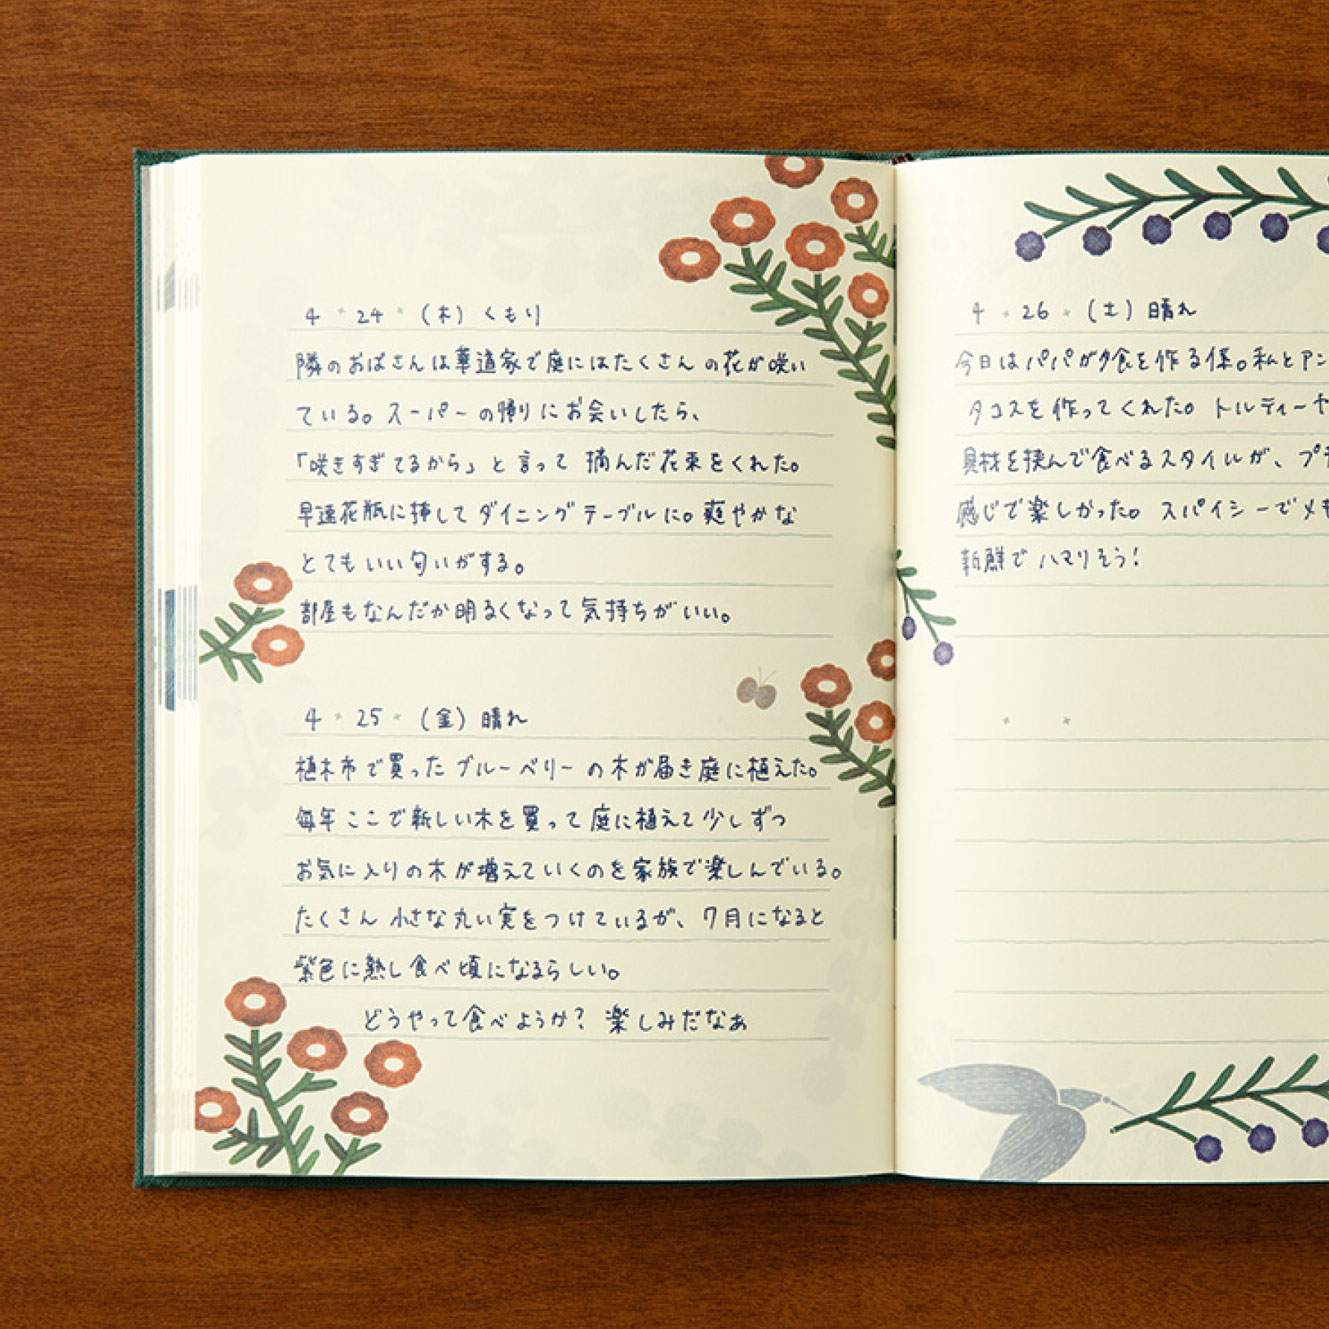 4 24 (木) くもり
隣のおばさんは華道家で庭にはたくさんの花が咲い
ている。スーパーの帰りにお会いしたら、
「咲きすぎてるから」と言って 摘んだ花束をくれた。
早速花瓶に挿してダイニングテーブルに。爽やかな
とてもいい匂いがする。
部屋もなんだか明るくなって気持ちがいい。
4 25 (金) 晴れ
植木市で買ったブルーベリーの木が届き庭に植えた。
毎年ここで新しい木を買って庭に植えて少しずつ
お気に入りの木が増えていくのを家族で楽しんでいる。
たくさん小さな丸い実をつけているが、7月になると
紫色に熟し食べ頃になるらしい。
どうやって食べようか? 楽しみだなぁ
4 26 (土) 晴れ
今日はパパが夕食を作る係。私とアン
タコスを作ってくれた。トルティーヤ
具材を挟んで食べるスタイルが、プ
感じで楽しかった。スパイシーでメキ
新鮮でハマりそう!